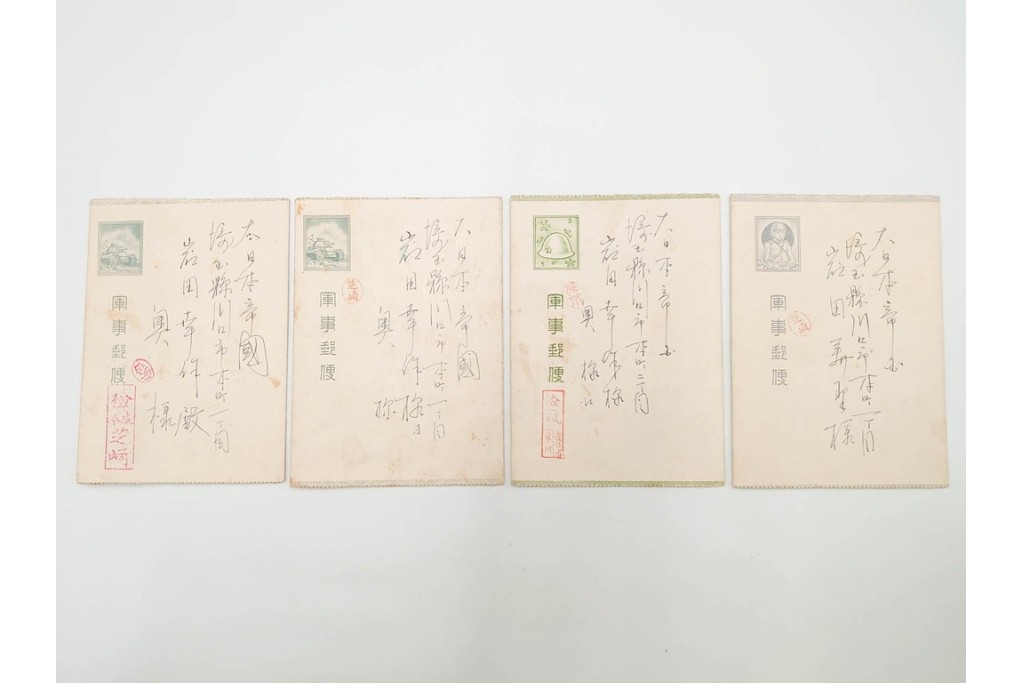 大日本帝國
埼玉縣川口市本町二丁目
岩田幸作殿
奥様
軍事郵便
檢
芝﨑
大日本帝國
埼玉縣川口市本町二丁目
岩田幸作様
奥様
軍事郵便
芝﨑
大日本帝国
埼玉縣川口市本町二丁目
岩田幸作様
奥様
軍事郵便
大日本帝国
埼玉縣川口市本町二丁目
岩田
様
軍事郵便